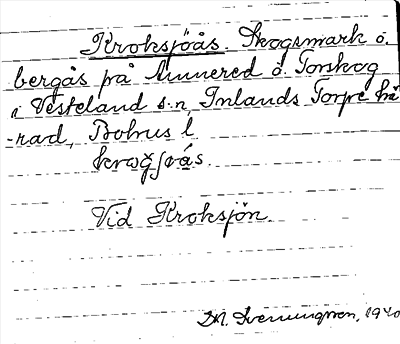 Kroksjöås. Skogsmark o.
bergås på Annered o. Torskog
i Västerland s:n, Inlands Torpe hä
-rad, Bohus l.
Vid Kroksjön.
1940